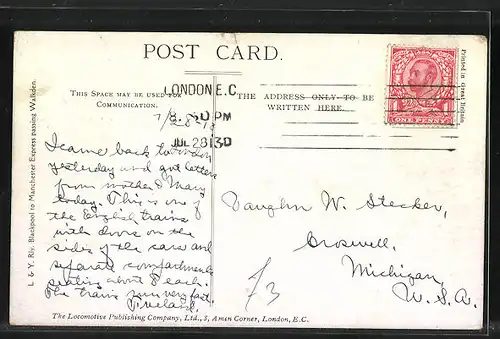 POST CARD.
THIS SPACE MAY BE USED FOR
COMMUNICATION.
LONDON E.C.
JUL 28 13
THE ADDRESS ONLY TO BE
WRITTEN HERE.
ONE PENNY
Printed in Great Britain
L & Y. Rly. Blackpool to Manchester Express passing Walkden.
I came back to London
yesterday and got letters
from mother & Mary
today. This is one of
the English trains
with doors on the
sides of the cars and
separate compartments
seating about 8 each.
The trains run very fast.
Vaughn W. Stecker,
Croswell,
Michigan,
U.S.A.
/3
The Locomotive Publishing Company, Ltd., 3, Amen Corner, London, E.C.